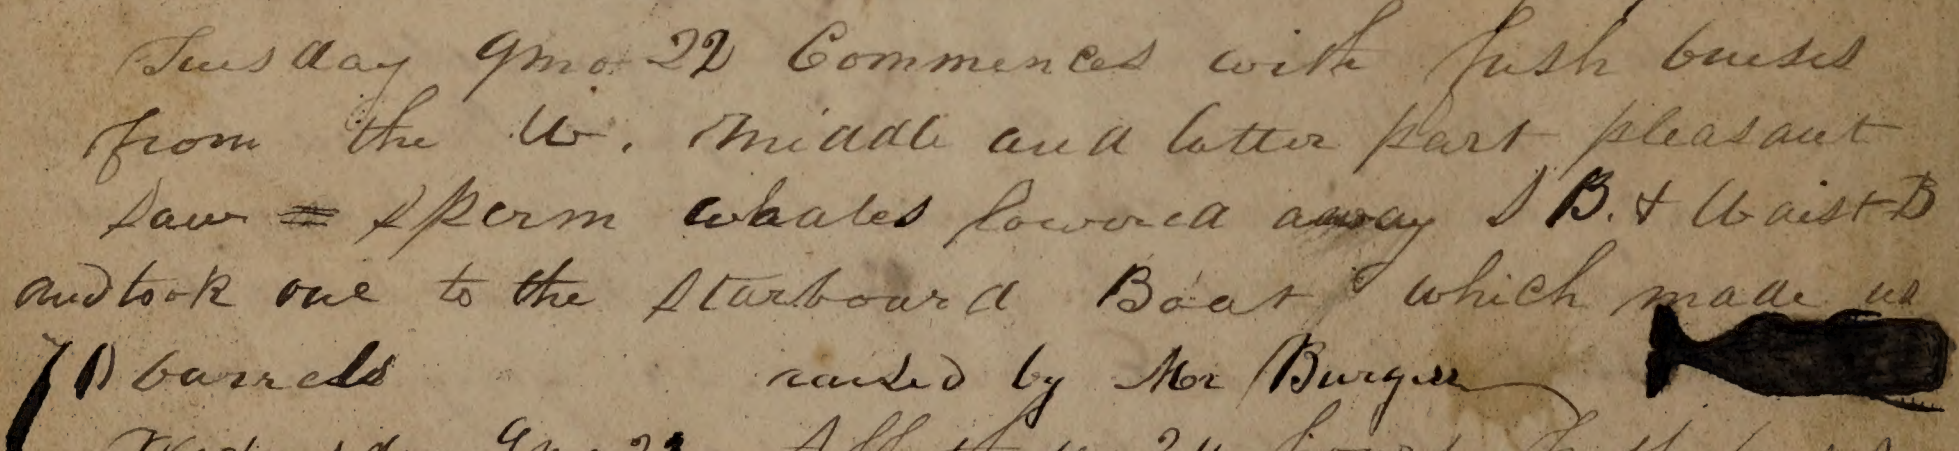 Tuesday 9mo 22 Commences with fresh breeses
from the W. Middle and latter part pleasant
saw = sperm whales lowered away S B. & Waist B
and took one to the Starboard Boat which made us
barrels raised by Mr Burgess
9mo 23 All